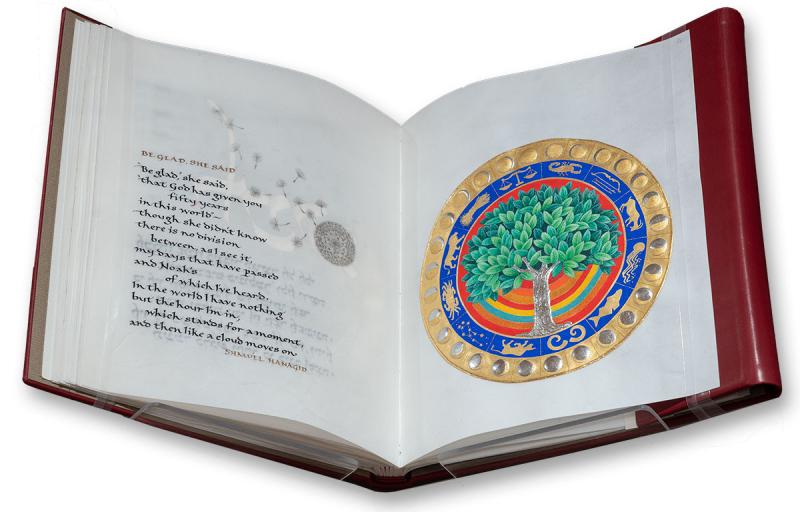 BE GLAD, SHE SAID
"Be glad," she said,
"that God has given you
fifty years
in this world"—
though she didn't know
there is no division
between, as I see it,
my days that have passed
and Noah's
of which I've heard.
In the world I have nothing
but the hour I'm in,
which stands for a moment,
and then like a cloud moves on
SHMUEL HANAGID